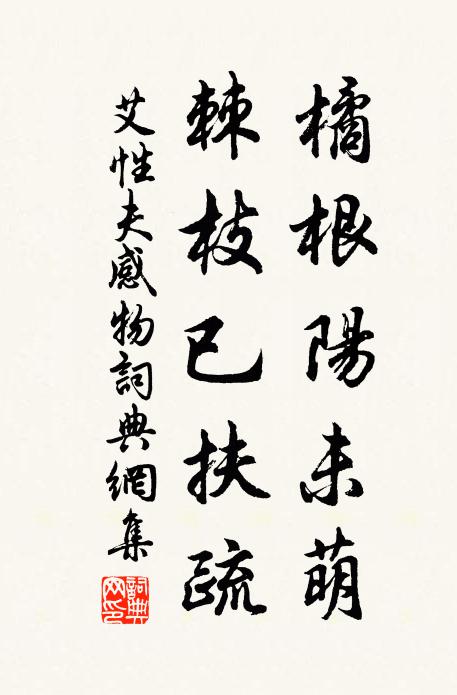 橘根陽未萌
棘枝已扶疏
艾性夫感物詞典網集
詞典網印